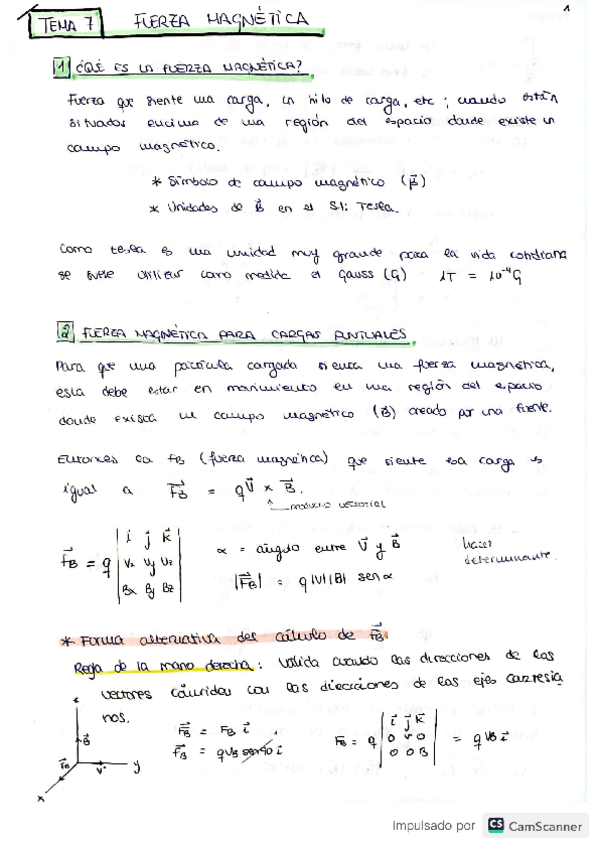 TEMA 7 FUERZA MAGNÉTICA 1
1 ¿QUÉ ES LA FUERZA MAGNÉTICA?
Fuerza que siente una carga, un hilo de carga, etc; cuando están
situados encima de una región del espacio donde existe un
campo magnético.
* Símbolo de campo magnético (B⃗)
* Unidades de B⃗ en el S.I: Tesla.
Como tesla es una unidad muy grande para la vida cotidiana
se suele utilizar como medida el Gauss (G) 1T = 10⁻⁴G
2 FUERZA MAGNÉTICA PARA CARGAS PUNTUALES
Para que una partícula cargada sienta una fuerza magnética,
esta debe estar en movimiento en una región del espacio
donde exista un campo magnético (B⃗) creado por una fuente.
Entonces la FB (fuerza magnética) que siente esa carga es
igual a F⃗B = qV⃗ x B⃗.
producto vectorial
F⃗B = q | i⃗ j⃗ k⃗ | α = ángulo entre V⃗ y B⃗ hacer
| Vx Vy Vz | determinante.
| Bx By Bz | |F⃗B| = q|V||B| sen α
* Forma alternativa del cálculo de F⃗B
Regla de la mano derecha: Válida cuando las direcciones de los
vectores coincidan con las direcciones de los ejes cartesia
nos.
z B⃗ F⃗B V⃗ y x
F⃗B = FB i⃗
F⃗B = qVB sen90 i⃗
FB = q | i⃗ j⃗ k⃗ | = qVB i⃗
| 0 V 0 |
| 0 0 B |
Impulsado por CS CamScanner